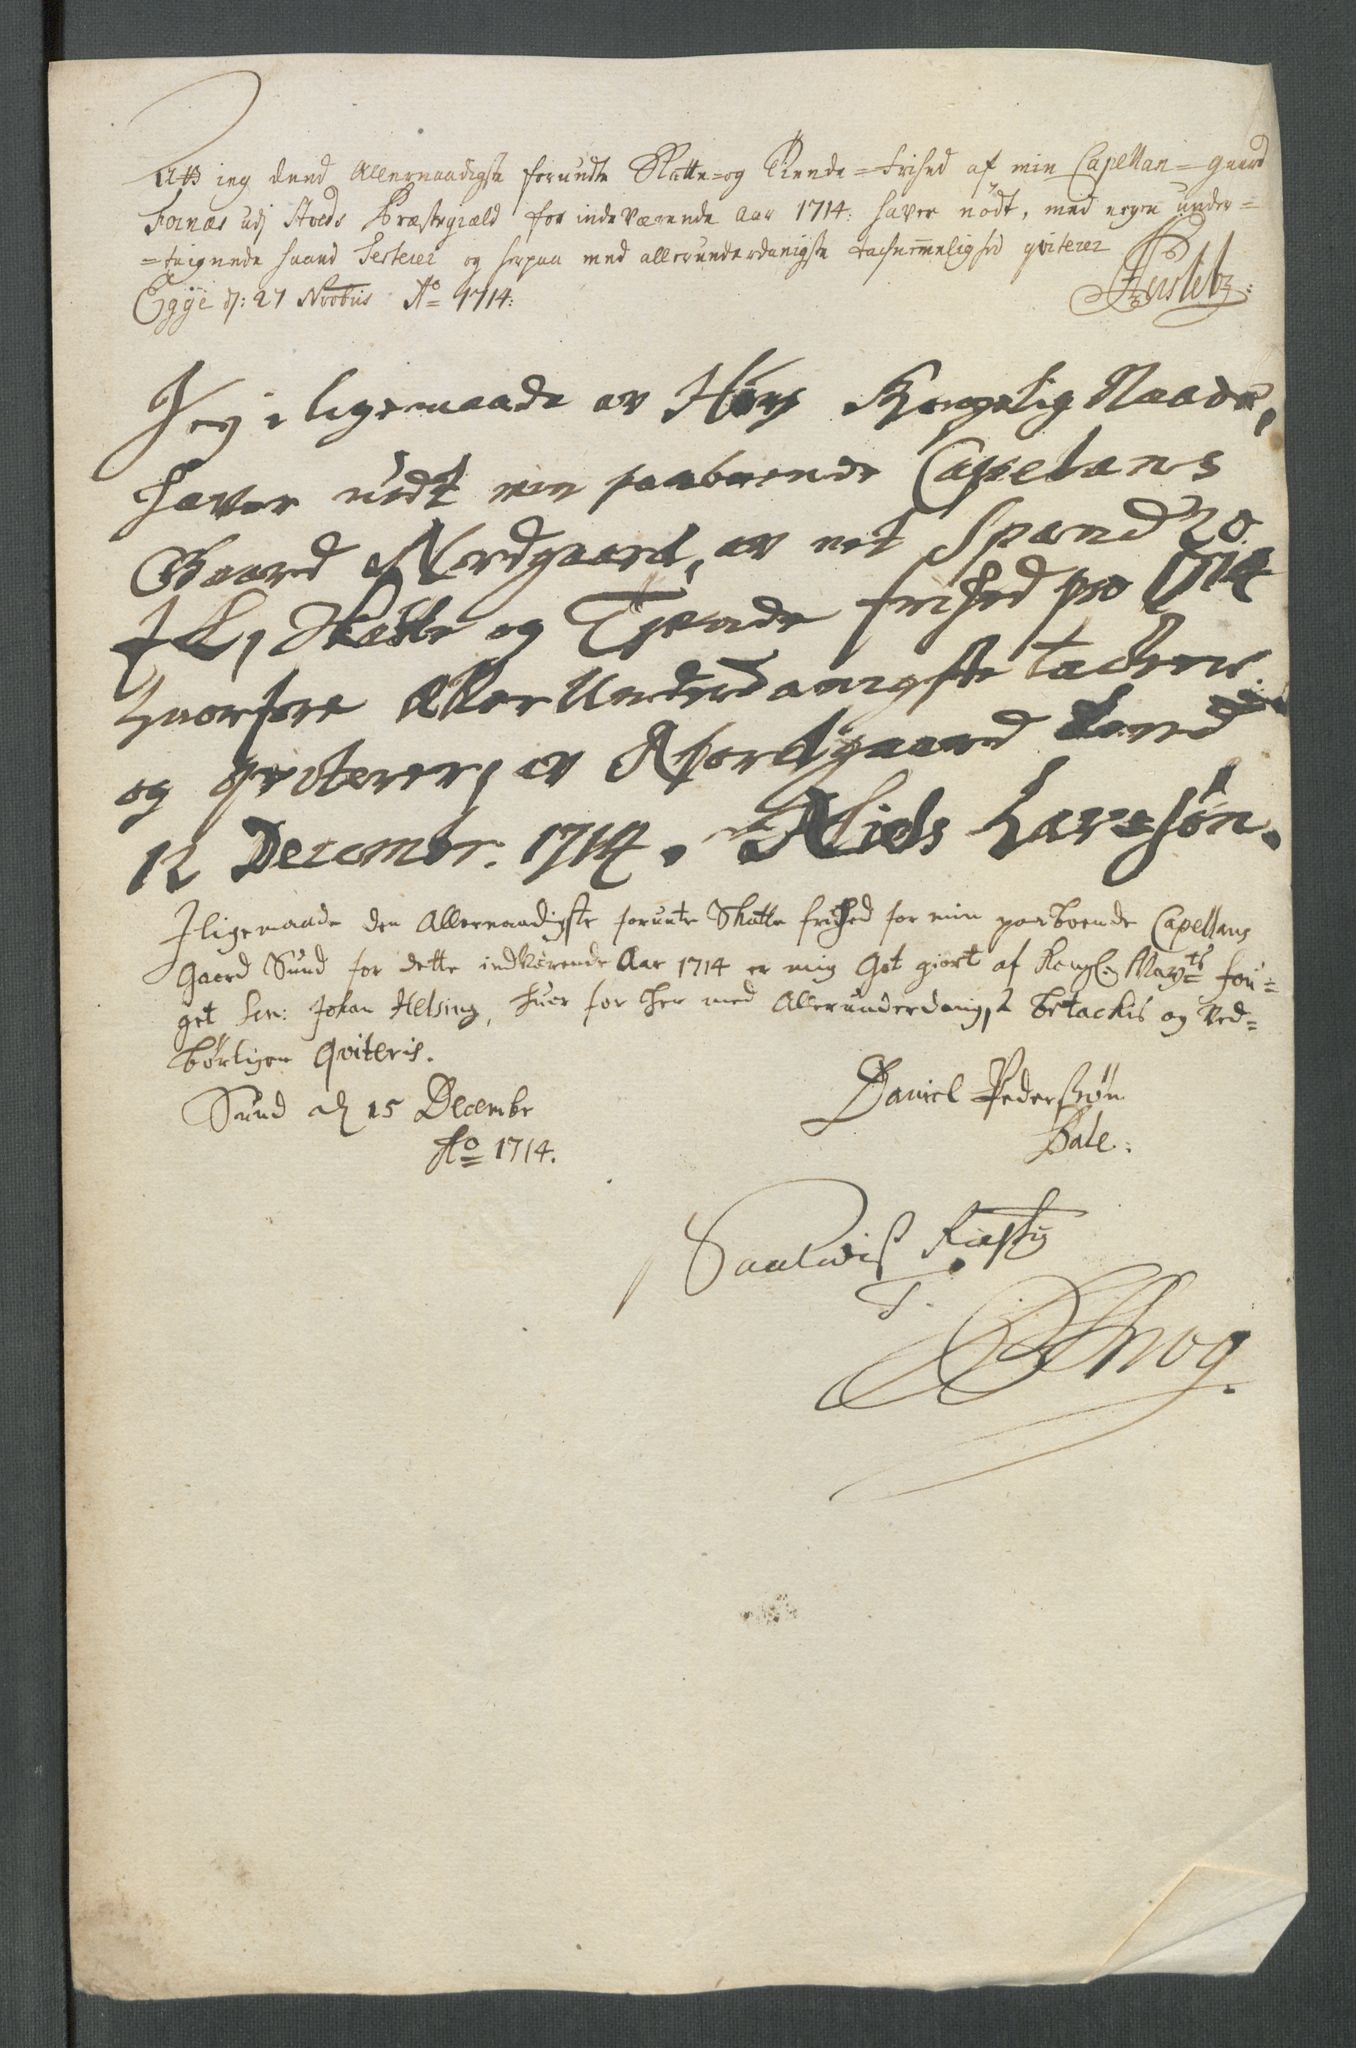 Att ieg dend Allernaadigste forundte Skatte= og Tiende=frihed af min Capellan=gaard
Fornæs udj Stods Præstegiæld for indeværende Aar 1714: haver nödt, med egen under=
=teignede haand Testerer og herpaa med allerunderdanigste tachnemmelighed qviterer
Egge d: 27 Novbris Ao 1714:
Jeg i ligemaade av Kongelig Naade,
haver nödt min paaboende Capelans
Gaard Nordgaard, av et Spand 20
Skatte og Tyende frihed pro 1714
huorfore Aller Underdanigste tackere
og qviterer, av Nordgaard
12 Decembr. 1714. Niels Larssøn.
Iligemaade den Allernaadigste forunte Skatte frihed for min paaboende Capellans
Gaard Sund for dette indværende Aar 1714 er mig Got giort af Kongl: Mayts fou=
get Sr: Johan Helsing, huor for her med Allerunderdanigst betackis og ved=
börligen Qviteris.
Sund d 15 Decembr
Ao 1714.
Daniel Pederssøn
Bale:
Saaledis Rigtig
T.